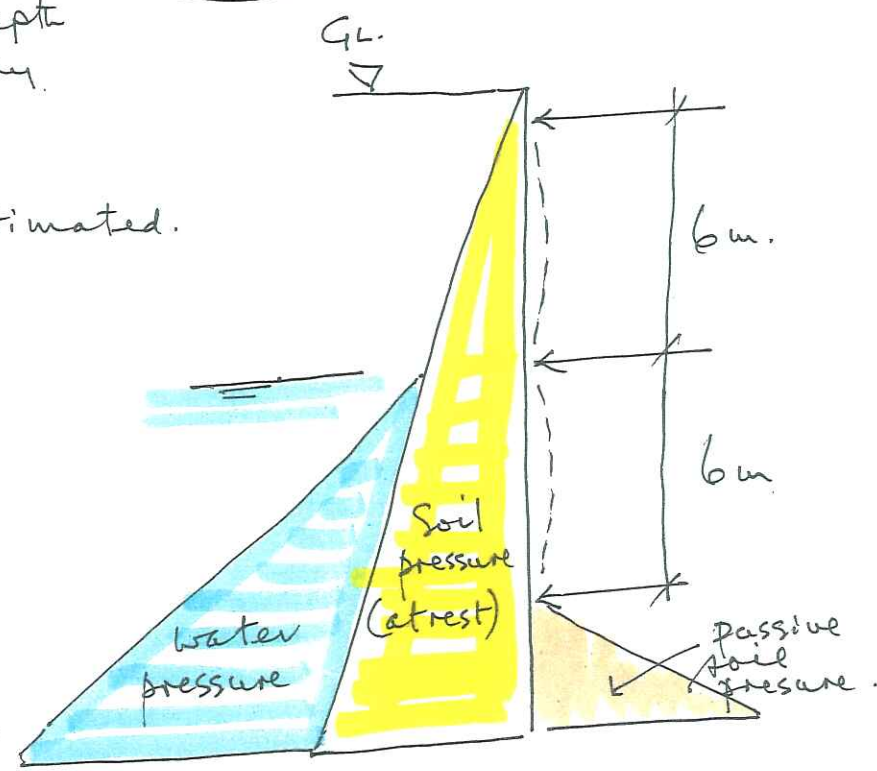 GL.
timated.
6 m.
6 m
Soil
pressure
(at rest)
water
pressure
passive
soil
presure.